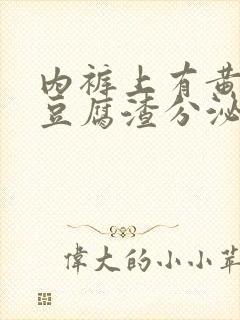 内裤上有黄
豆腐渣分泌
偉大的小小苹